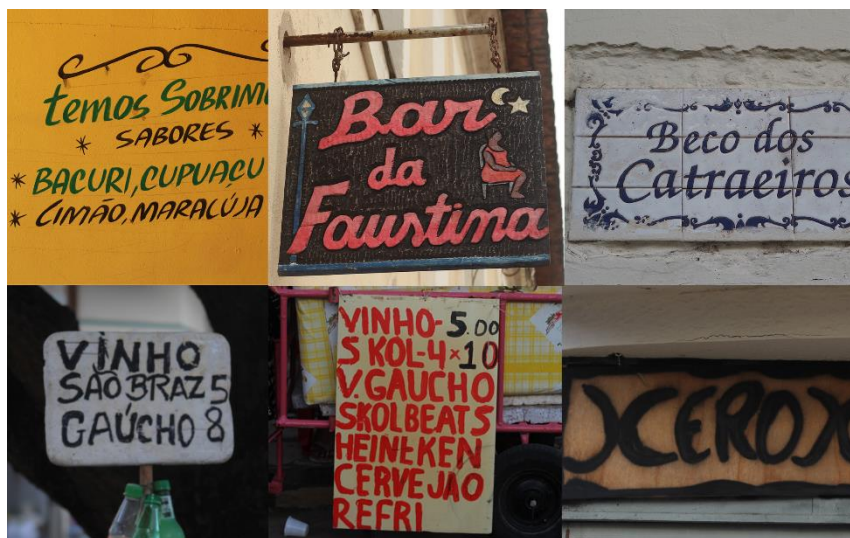 temos SOBRIM
* SABORES *
* BACURI, CUPUAÇU
* LIMÃO, MARACÚJA
Bar
da
Faustina
Beco dos
Catraeiros
VINHO
SÃO BRAZ 5
GAÚCHO 8
VINHO-5.00
SKOL-4x10
V.GAUCHO
SKOLBEATS
HEINEKEN
CERVEJÃO
REFRI
XEROX